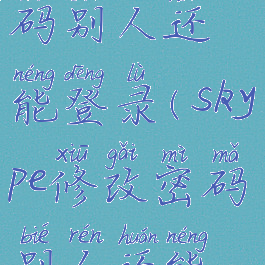 码别人还
néng dēng lù
能登录(sky
xiū gǎi mì mǎ
pe修改密码
bié rén huán néng
别人还能